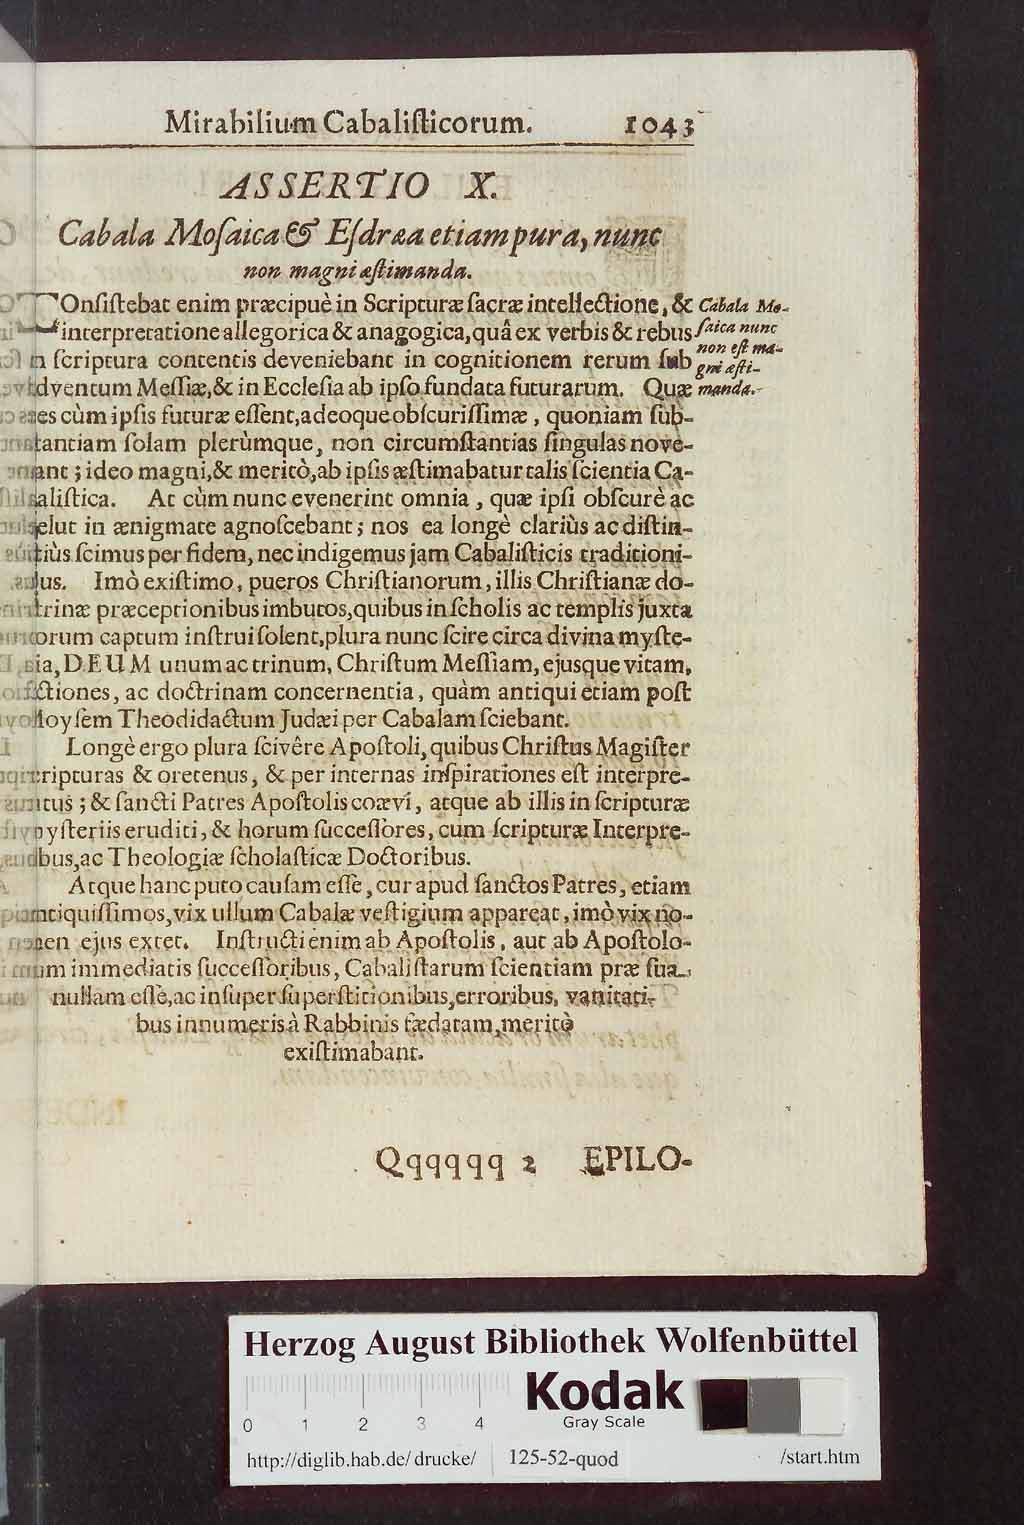 Mirabilium Cabaliſticorum. 1043
ASSERTIO X.
Cabala Moſaica & Eſdræa etiam pura, nunc
non magni æſtimanda.
Onſiſtebat enim præcipuè in Scripturæ ſacræ intellectione, &
interpretatione allegorica & anagogica, quâ ex verbis & rebus
n ſcriptura contentis deveniebant in cognitionem rerum ſub
dventum Meſſiæ, & in Eccleſia ab ipſo fundata futurarum. Quæ
es cùm ipſis futuræ eſſent, adeoque obſcuriſſimæ, quoniam ſub-
tantiam ſolam plerùmque, non circumſtantias ſingulas nove-
ant; ideo magni, & meritò, ab ipſis æſtimabatur talis ſcientia Ca-
aliſtica. At cùm nunc evenerint omnia, quæ ipſi obſcurè ac
elut in ænigmate agnoſcebant; nos ea longè clariùs ac diſtin-
tiùs ſcimus per fidem, nec indigemus jam Cabaliſticis traditioni-
us. Imò exiſtimo, pueros Chriſtianorum, illis Chriſtianæ do-
trinæ præceptionibus imbutos, quibus in ſcholis ac templis juxta
orum captum inſtrui ſolent, plura nunc ſcire circa divina myſte-
ia, DEUM unum ac trinum, Chriſtum Meſſiam, ejusque vitam,
ctiones, ac doctrinam concernentia, quàm antiqui etiam poſt
oyſem Theodidactum Judæi per Cabalam ſciebant.
Longè ergo plura ſcivêre Apoſtoli, quibus Chriſtus Magiſter
cripturas & oretenus, & per internas inſpirationes eſt interpre-
tus; & ſancti Patres Apoſtolis coævi, atque ab illis in ſcripturæ
yſteriis eruditi, & horum ſucceſſores, cum ſcripturæ Interpre-
bus, ac Theologiæ ſcholaſticæ Doctoribus.
Atque hanc puto cauſam eſſe, cur apud ſanctos Patres, etiam
ntiquiſſimos, vix ullum Cabalæ veſtigium appareat, imò vix no-
en ejus extet. Inſtructi enim ab Apoſtolis, aut ab Apoſtolo-
um immediatis ſucceſſoribus, Cabaliſtarum ſcientiam præ ſua
nullam eſſe, ac inſuper ſuperſtitionibus, erroribus, vanitati-
bus innumeris à Rabbinis fædatam, meritò
exiſtimabant.
Cabala Mo-
ſaica nunc
non eſt ma-
gni æſti-
manda.
Qqqqqq 2 EPILO-
Herzog August Bibliothek Wolfenbüttel
Kodak
Gray Scale
0 1 2 3 4
http://diglib.hab.de/drucke/ 125-52-quod /start.htm